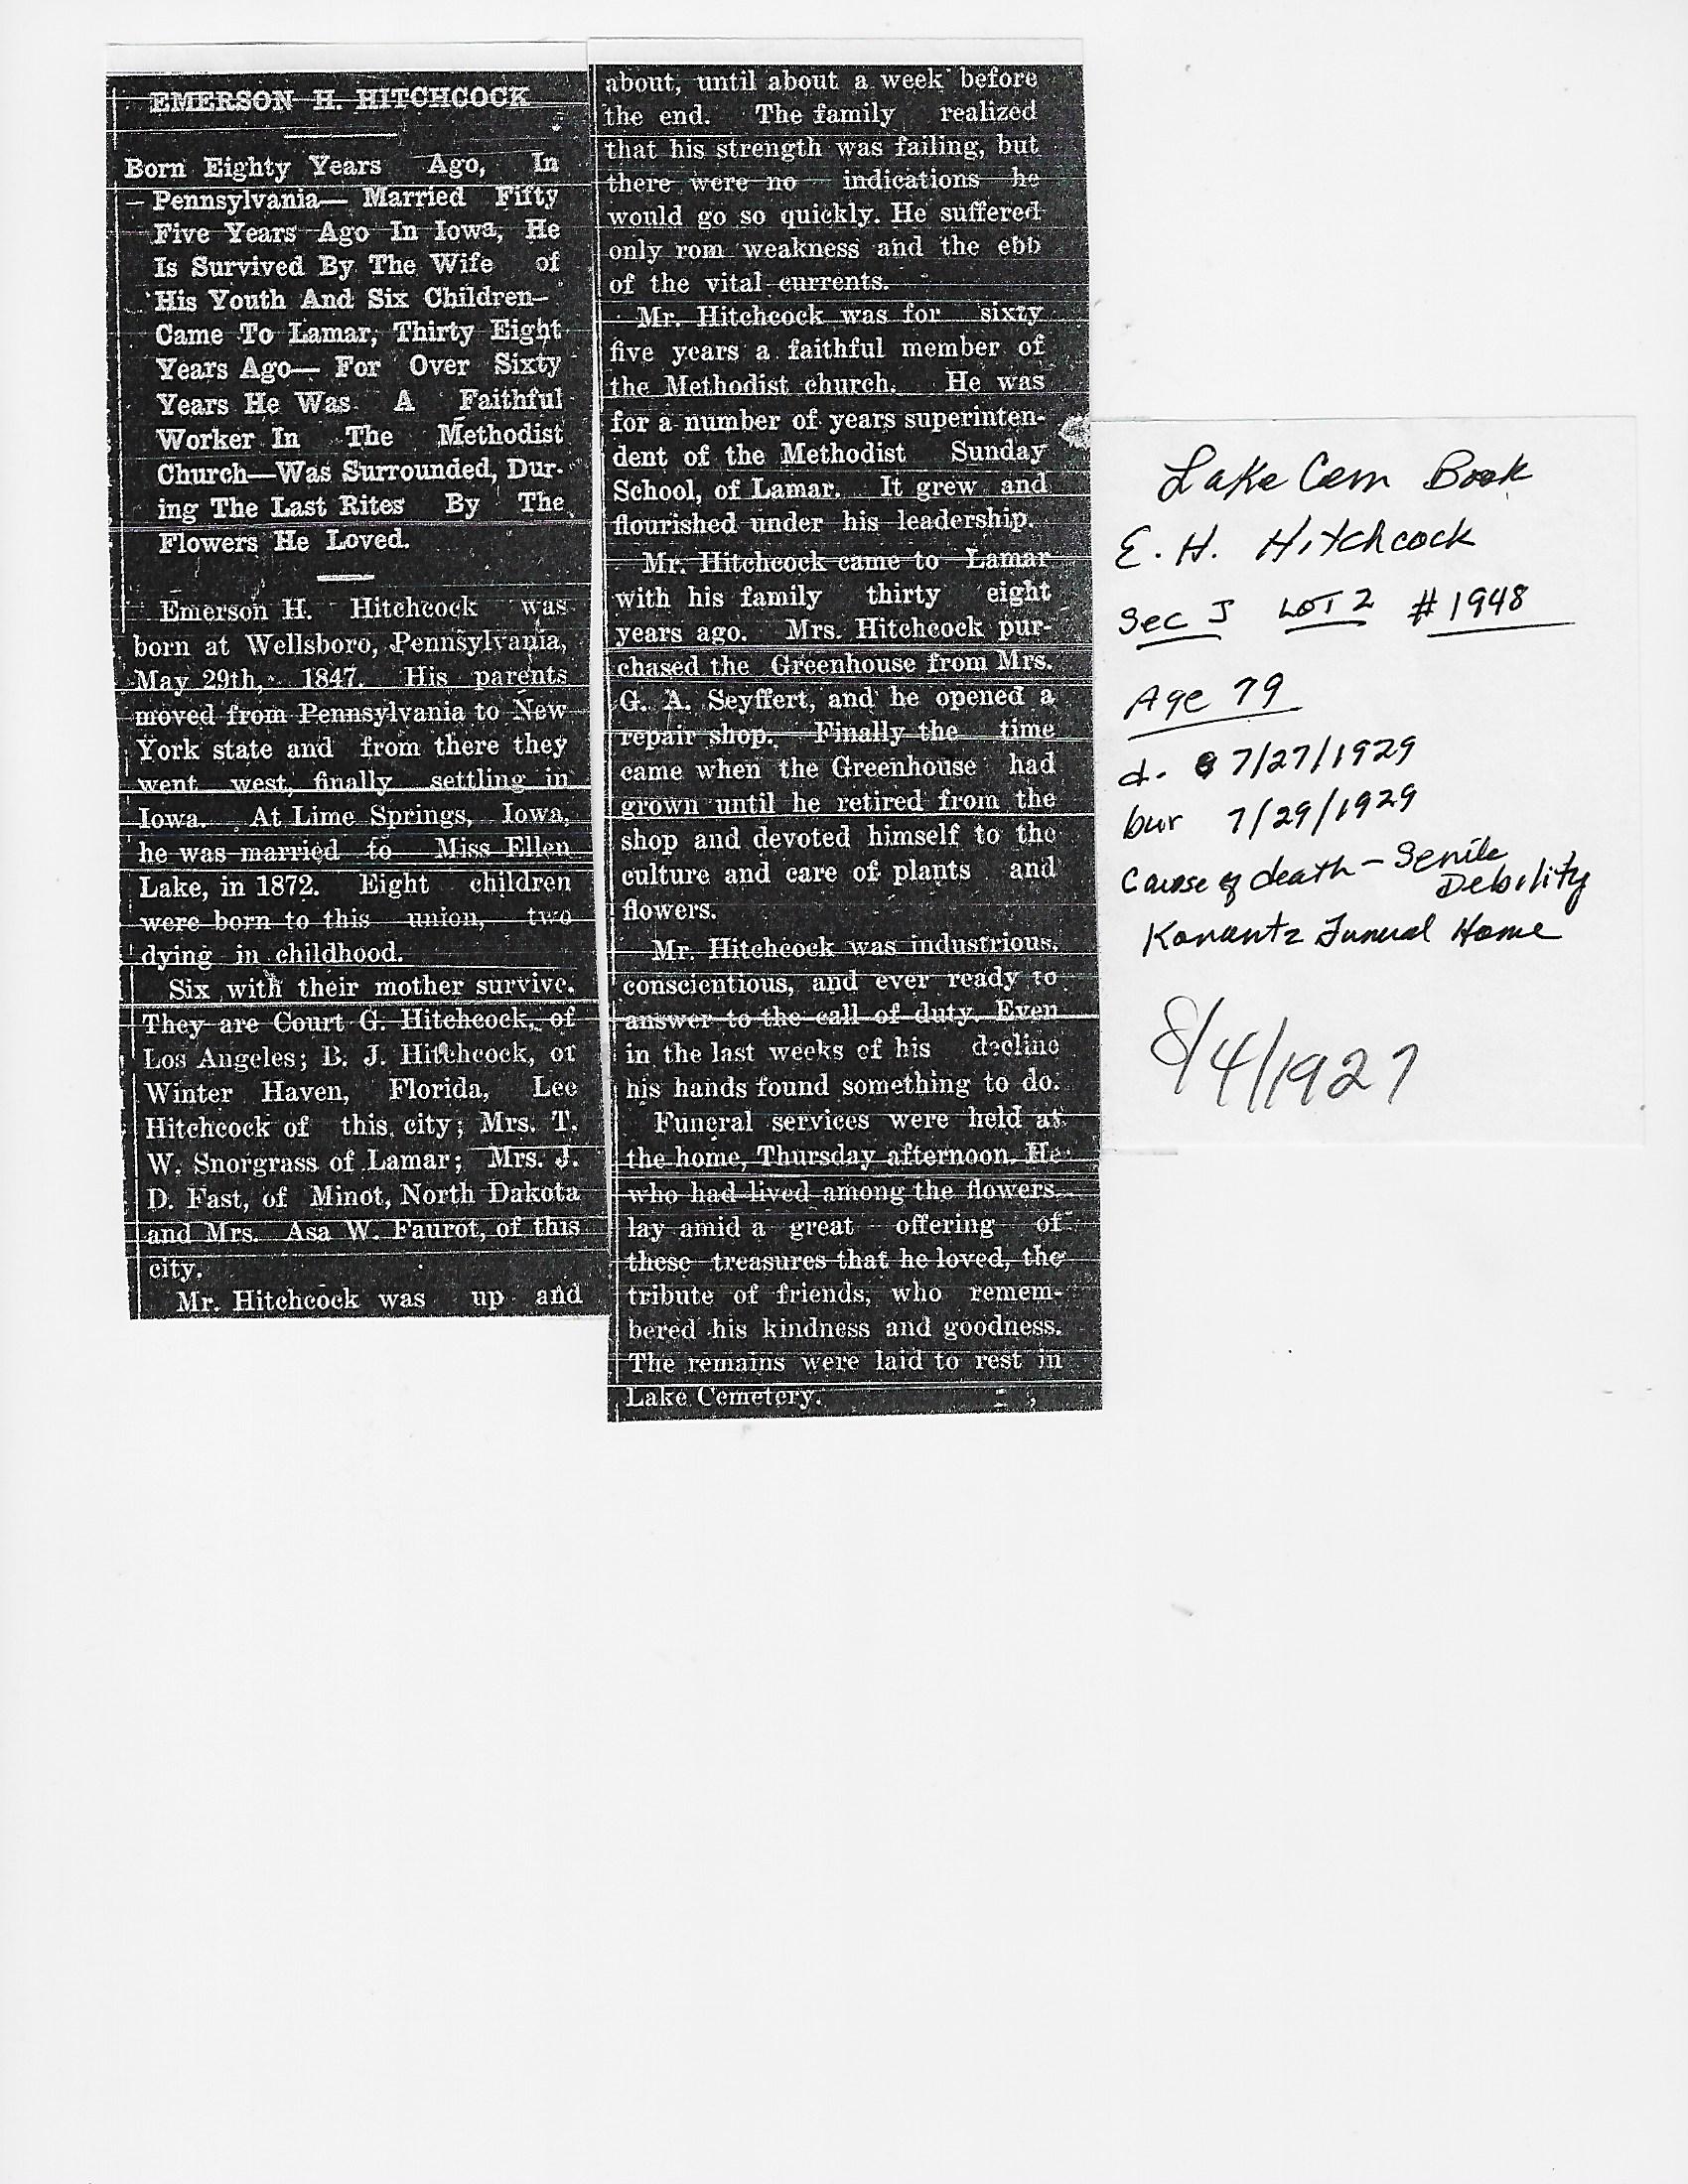 EMERSON H. HITCHCOCK
Born Eighty Years Ago, In
Pennsylvania— Married Fifty
Five Years Ago In Iowa, He
Is Survived By The Wife of
His Youth And Six Children—
Came To Lamar, Thirty Eight
Years Ago— For Over Sixty
Years He Was A Faithful
Worker In The Methodist
Church—Was Surrounded, Dur-
ing The Last Rites By The
Flowers He Loved.
Emerson H. Hitchcock was
born at Wellsboro, Pennsylvania,
May 29th, 1847. His parents
moved from Pennsylvania to New
York state and from there they
went west, finally settling in
Iowa. At Lime Springs, Iowa,
he was married to Miss Ellen
Lake, in 1872. Eight children
were born to this union, two
dying in childhood.
Six with their mother survive.
They are Court G. Hitchcock, of
Los Angeles; B. J. Hitchcock, of
Winter Haven, Florida, Lee
Hitchcock of this city; Mrs. T.
W. Snorgrass of Lamar; Mrs. J.
D. Fast, of Minot, North Dakota
and Mrs. Asa W. Faurot, of this
city.
Mr. Hitchcock was up and
about, until about a week before
the end. The family realized
that his strength was failing, but
there were no indications he
would go so quickly. He suffered
only rom weakness and the ebb
of the vital currents.
Mr. Hitchcock was for sixty
five years a faithful member of
the Methodist church. He was
for a number of years superinten-
dent of the Methodist Sunday
School, of Lamar. It grew and
flourished under his leadership.
Mr. Hitchcock came to Lamar
with his family thirty eight
years ago. Mrs. Hitchcock pur-
chased the Greenhouse from Mrs.
G. A. Seyffert, and he opened a
repair shop. Finally the time
came when the Greenhouse had
grown until he retired from the
shop and devoted himself to the
culture and care of plants and
flowers.
Mr. Hitchcock was industrious,
conscientious, and ever ready to
answer to the call of duty. Even
in the last weeks of his decline
his hands found something to do.
Funeral services were held at
the home, Thursday afternoon. He
who had lived among the flowers,
lay amid a great offering of
these treasures that he loved, the
tribute of friends, who remem-
bered his kindness and goodness.
The remains were laid to rest in
Lake Cemetery.
Lake Cem Book
E. H. Hitchcock
Sec J LOT 2 #1948
Age 79
d. 7/27/1929
bur 7/29/1929
Cause of death – Senile
Debility
Konantz Funeral Home
8/4/1927